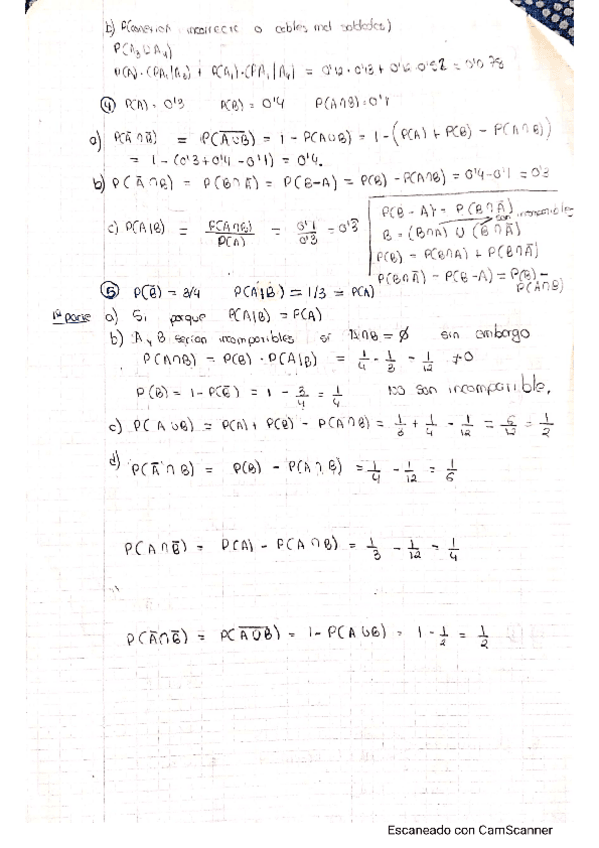 b) P(conexión incorrecta o cables mal soldados)
P(A₃∪A₄)
④ P(A) = 0'3 P(B) = 0'4 P(A∩B) = 0'1
a) P(A̅∩B̅) = P(A̅∪̅B̅) = 1 - P(A∪B) = 1 - (P(A) + P(B) - P(A∩B))
= 1 - (0'3 + 0'4 - 0'1) = 0'4.
b) P(A̅∩B) = P(B∩A̅) = P(B-A) = P(B) - P(A∩B) = 0'4 - 0'1 = 0'3
c) P(A|B) = P(A∩B)/P(A) = 0'1/0'3 = 0'3̅
P(B - A) = P(B∩A̅)
son incompatibles
B = (B∩A) ∪ (B∩A̅)
P(B) = P(B∩A) + P(B∩A̅)
P(B∩A̅) - P(B-A) = P(B) -
P(A∩B)
⑤ P(B̅) = 3/4 P(A|B) = 1/3 = P(A)
1ª parte a) Si, porque P(A|B) = P(A)
b) A y B serian incompatibles si A∩B = ∅ sin embargo
P(A∩B) = P(B) · P(A|B) = 1/4 · 1/3 = 1/12 ≠ 0
P(B) = 1 - P(B̅) = 1 - 3/4 = 1/4 No son incompatible.
c) P(A∪B) = P(A) + P(B) - P(A∩B) = 1/3 + 1/4 - 1/12 = 6/12 = 1/2
d) P(A̅∩B) = P(B) - P(A∩B) = 1/4 - 1/12 = 1/6
P(A∩B̅) = P(A) - P(A∩B) = 1/3 - 1/12 = 1/4
P(A̅∩B̅) = P(A̅∪̅B̅) = 1 - P(A∪B) = 1 - 1/2 = 1/2
Escaneado con CamScanner